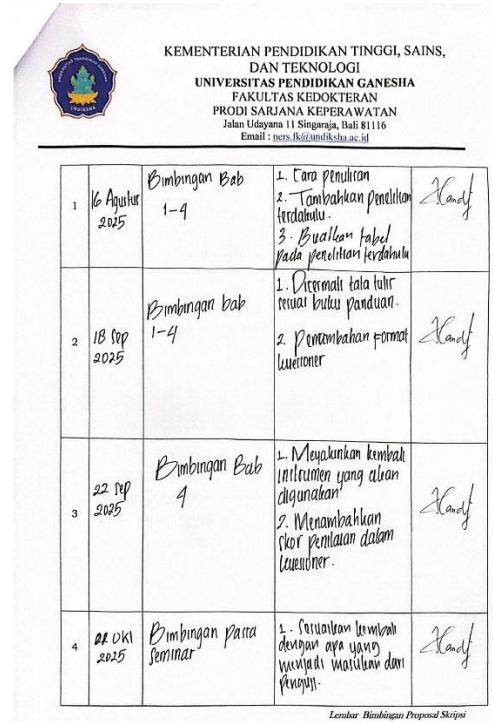 KEMENTERIAN PENDIDIKAN TINGGI, SAINS,
DAN TEKNOLOGI
UNIVERSITAS PENDIDIKAN GANESHA
FAKULTAS KEDOKTERAN
PRODI SARJANA KEPERAWATAN
Jalan Udayana 11 Singaraja, Bali 81116
Email : ners.fk@undiksha.ac.id
UNIVERSITAS PENDIDIKAN GANESHA
UNDIKSHA
1
16 Agustus
2025
Bimbingan Bab
1-4
1. Cara penulisan
2. Tambahkan penelitian
terdahulu.
3. Buatkan tabel
pada penelitian terdahulu
2
18 Sep
2025
Bimbingan bab
1-4
1. Dicermati tata tulis
sesuai buku panduan.
2. Penambahan Format
kuesioner
3
22 Sep
2025
Bimbingan Bab
4
1. Meyakinkan kembali
instrumen yang akan
digunakan
2. Menambahkan
skor penilaian dalam
kuesioner.
4
OKt
2025
Bimbingan pasca
Seminar
1. Sesuaikan kembali
dengan apa yang
menjadi masukan dari
Penguji.
Lembar Bimbingan Proposal Skripsi